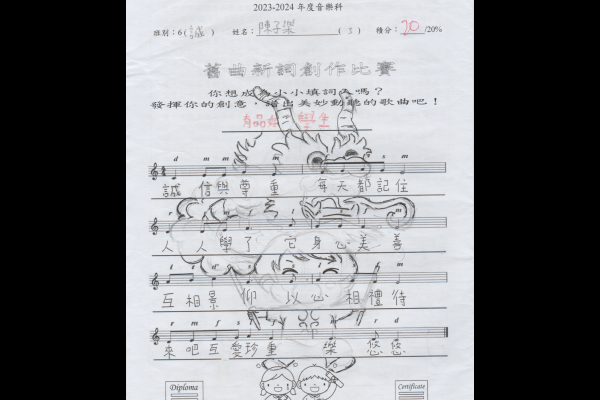 2023-2024 年度音樂科
班別：6(誠) 姓名：陳子樂(3) 積分：20/20%
舊曲新詞創作比賽
你想成為小小填詞人嗎？
發揮你的創意，譜出美妙動聽的歌曲吧！
有品好學生
誠 信與尊重 每天都記住
人人學了 它身心美善
互相景仰 以心相禮待
來吧互愛珍重 樂悠悠
Diploma Certificate